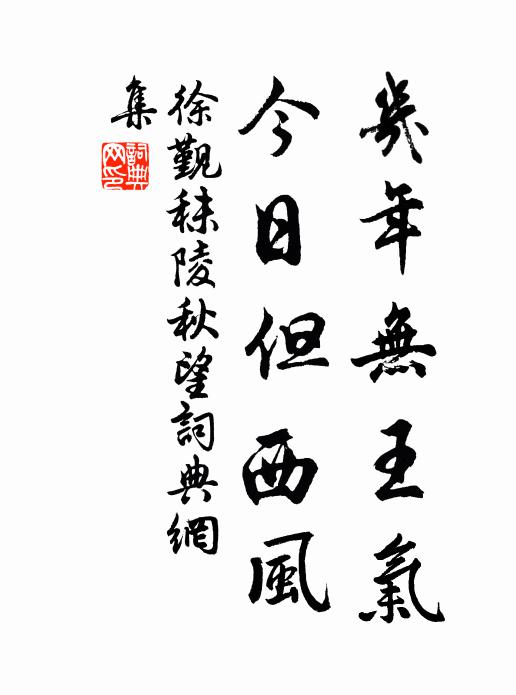 幾年無王氣
今日但西風
徐觀秣陵秋望詞典網
集
詞典網印